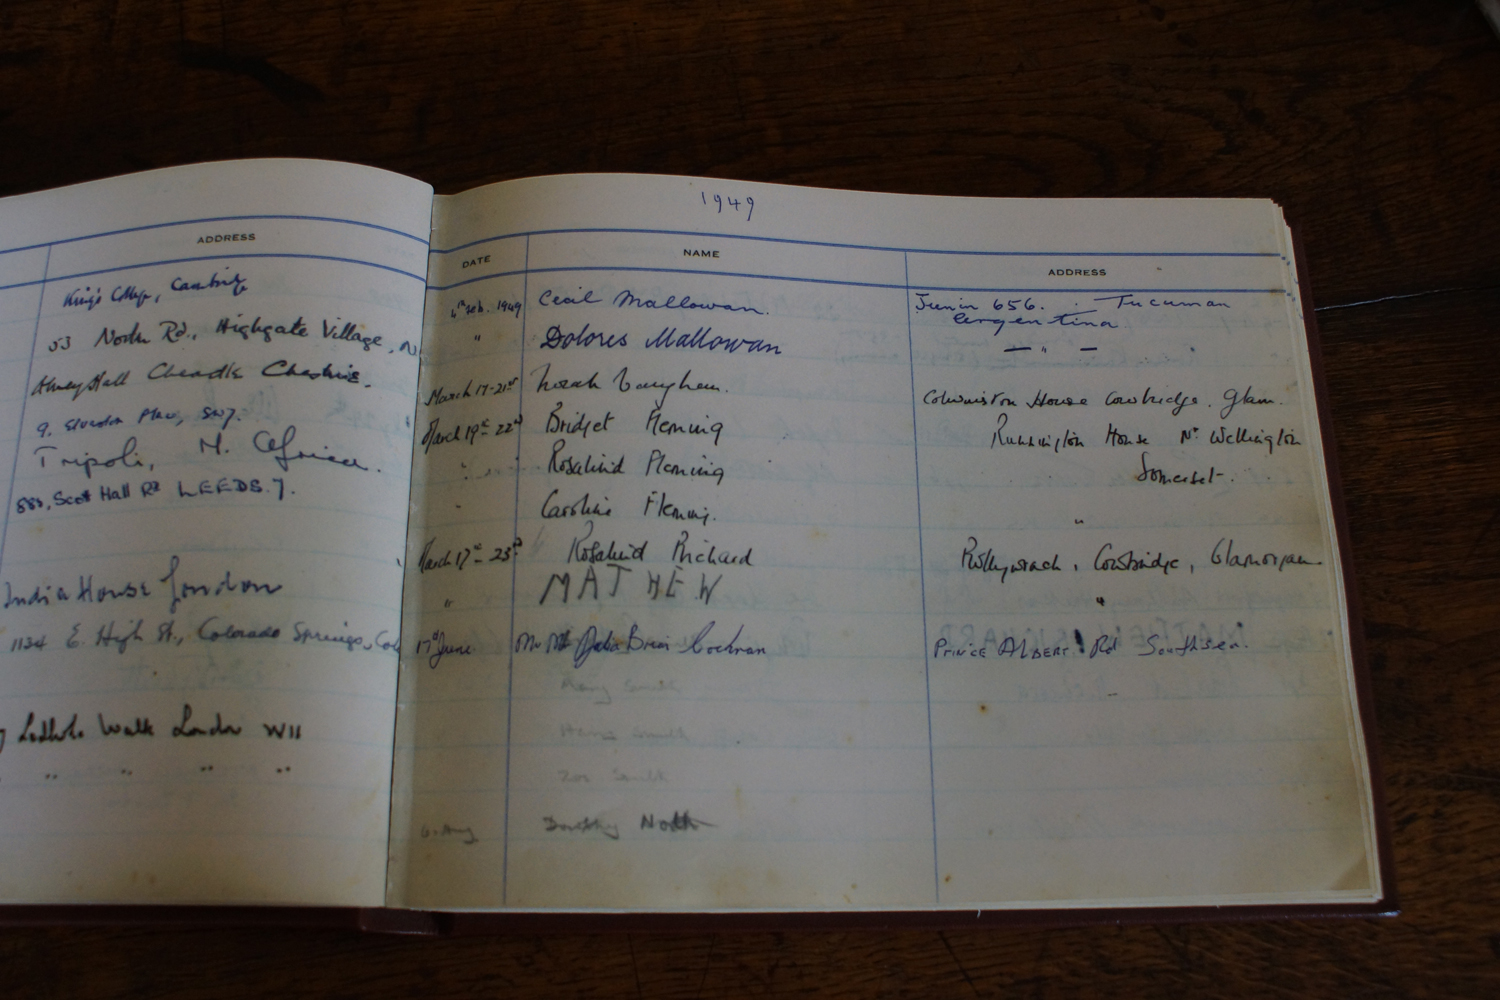 ADDRESS
King's College, Cambridge
53 North Rd., Highgate Village, N
Abney Hall Cheadle Cheshire.
9, Place, SW7.
Tripoli, N. Africa.
883, Scott Hall Rd LEEDS. 7.
India House London
1134 E. High St., Colorado Springs, Col
Walk London W11
" " " "
1949
DATE NAME ADDRESS
4th Feb. 1949 Cecil Mallowan. Junin 656. Tucuman
Argentina
" Dolores Mallowan — " —
March 17-21st Vaughan. House Cowbridge. Glam.
March 19th-22nd Bridget Fleming Runnington House Nr Wellington
" Rosalind Fleming Somerset.
" Caroline Fleming. "
March 17th-23rd Rosalind Prichard Pwllywrach, Cowbridge, Glamorgan
" MATHEW "
17th June Mr Brian Cochran PRINCE ALBERT Rd Southsea.
Mary Smith
Smith
Zoe Smith
Aug Dorothy North